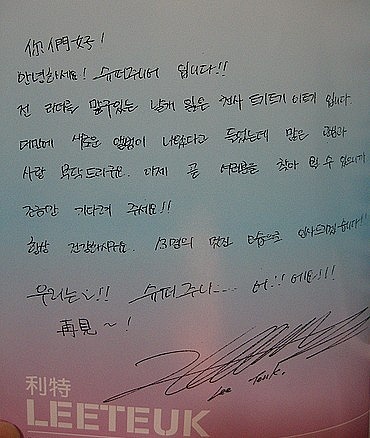 你們好!
안녕하세요! 슈퍼주니어 입니다!!
전 리더를 맡구있는 날개 잃은 천사 트기트기 이특 입니다.
대만에 새로운 앨범이 나왔다고 들었는데 많은
사랑 부탁드리구요. 이제 곧 여러분을 찾아 뵐 수 있으니까
조금만 기다려 주세요!!
항상 건강하시구요. 13명의 멋진 모습으로 인사드리겠습니다!!
우리는...!! 슈퍼주니... 어!! 에요!!!
再見~!
Lee Teuk.
利特
LEETEUK